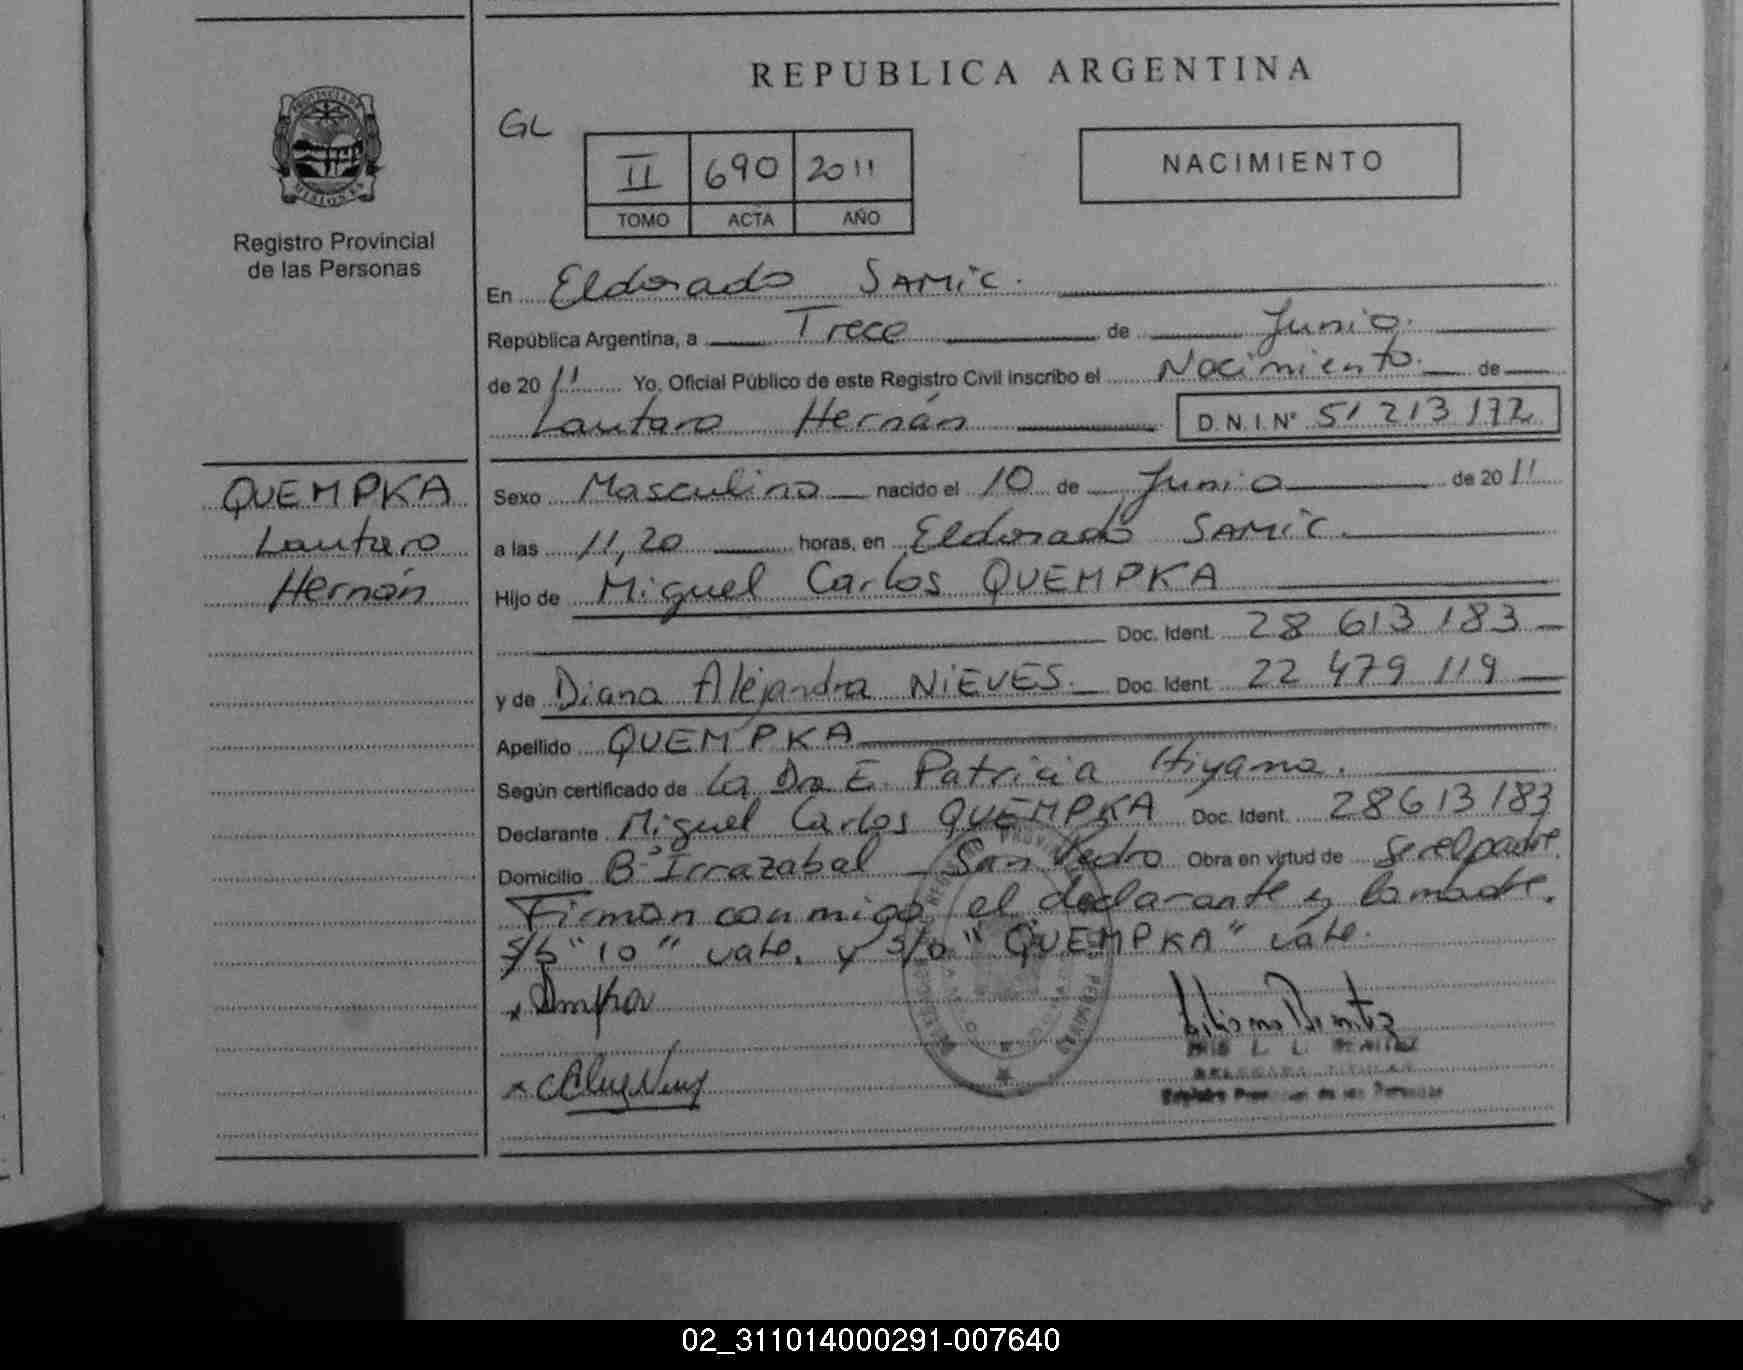 REPUBLICA ARGENTINA
GL
II 690 2011
TOMO ACTA AÑO
NACIMIENTO
PROVINCIA DE
MISIONES
Registro Provincial
de las Personas
En Eldorado SAMiC.
República Argentina, a Trece de Junio.
de 2011 Yo, Oficial Público de este Registro Civil inscribo el Nacimiento. de
Lautaro Hernán D.N.I.Nº 51 213 172
QUEMPKA
Lautaro
Hernán
Sexo Masculino nacido el 10 de Junio de 2011
a las 11,20 horas, en Eldorado SAMiC.
Hijo de Miguel Carlos QUEMPKA
Doc. Ident. 28 613 183
y de Diana Alejandra NiEVES. Doc. Ident. 22 479 119
Apellido QUEMPKA
Según certificado de La Dra E. Patricia Hiyama.
Declarante Miguel Carlos QUEMPKA Doc. Ident. 28613183
Domicilio Bº Irrazabal - San Pedro Obra en virtud de ser el padre.
Firman conmigo el declarante y la madre.
S/b "10" vale. y s/o "QUEMPKA" vale.
Registro Provincial de las Personas
02_311014000291-007640